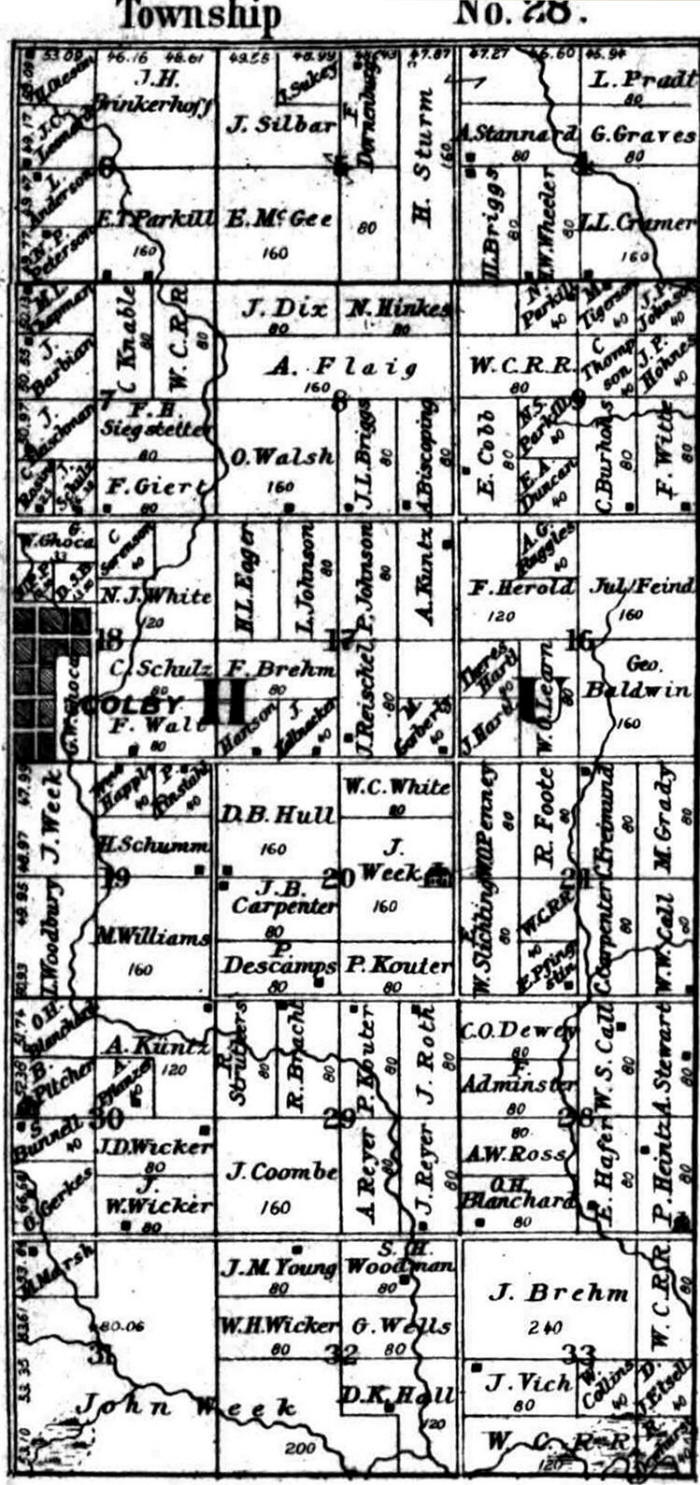 Township No. 28.
53.09 46.16 46.61 49.55 48.99 47.87 47.27 46.60 45.94
J.H. Brinkerhoff
J. Sukey
J. Silbar
F. Dornenburg
H. Sturm
160
L. Pradt
80
A. Stannard
80
G. Graves
80
J.C. Leonard
6
5
4
L. Anderson
P. Peterson
E.T. Parkill
160
E. McGee
160
80
H. Briggs
80
H.W. Wheeler
80
L.L. Cramer
160
M.L. Chapman
C Knable
80
W.C.R.R
80
J. Dix
80
N. Hinkes
80
N. Parkill
40
M. Tigerson
40
J.P. Johnson
40
J. Barbian
A. Flaig
160
W.C.R.R.
80
C Thompson
40
J.P. Hohnes
40
7
8
9
F.H. Siegstetter
80
O. Walsh
160
J.L. Briggs
80
A. Biscoping
80
E. Cobb
80
N.S. Parkill
40
C. Burhols
80
F. Witte
80
J. Schulz
F. Giert
80
E.A. Duncan
40
W. Ghoca
C Sorenson
40
H.L. Eager
80
L. Johnson
80
P. Johnson
80
A. Kuntz
80
A.G. Ruggles
40
D.S.B.
N.J. White
120
F. Herold
120
Jul. Feind
160
18
17
16
C. Schulz
80
F. Brehm
80
J. Reischel
80
Theres Hartl
40
W.O. Learn
80
Geo. Baldwin
160
COLBY
H
U
G.W. Ghoca
F. Walt
80
Hanson
J.
40
M. Gerbert
40
J. Hartl
J. Week
Happl
40
P.
40
D.B. Hull
160
W.C. White
80
W.D. Penney
80
R. Foote
80
C. Freimund
80
M. Grady
80
H. Schumm
J. Week
160
19
20
21
L. Woodbury
M. Williams
160
J.B. Carpenter
80
W. Slichting
80
W.C.R.R
40
C. Carpenter
80
W.W. Call
80
P. Descamps
80
P. Kouter
80
E. Pfingstin
40
O.H. Blanchard
A. Kuntz
120
R. Struthers
80
R. Bracht
80
P. Kouter
80
J. Roth
80
C.O. Dewey
80
W.S. Call
80
A. Stewart
80
B. Pitcher
A. Pflanzer
40
F. Adminster
80
30
29
28
S. Bunnell
40
J.D. Wicker
80
J. Coombe
160
A Reyer
80
J. Reyer
80
A.W. Ross
80
E. Hafer
80
P. Heintz
80
O. Gerkes
J. W. Wicker
80
O.H. Blanchard
80
M. Marsh
J.M. Young
80
S.H. Woodman
80
J. Brehm
240
W.C.R.R
80
480.06
W.H. Wicker
80
G. Wells
80
31
32
33
J. Vich
80
W. Collins
40
D.J. Etsell
40
John Week
200
D.K. Hall
120
W. C. R. R
120